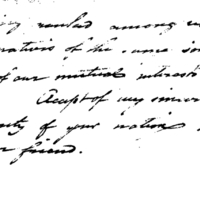 ranked among
nations of the same
of our mutual interests
Accept of my sincere
of your nation
friend.